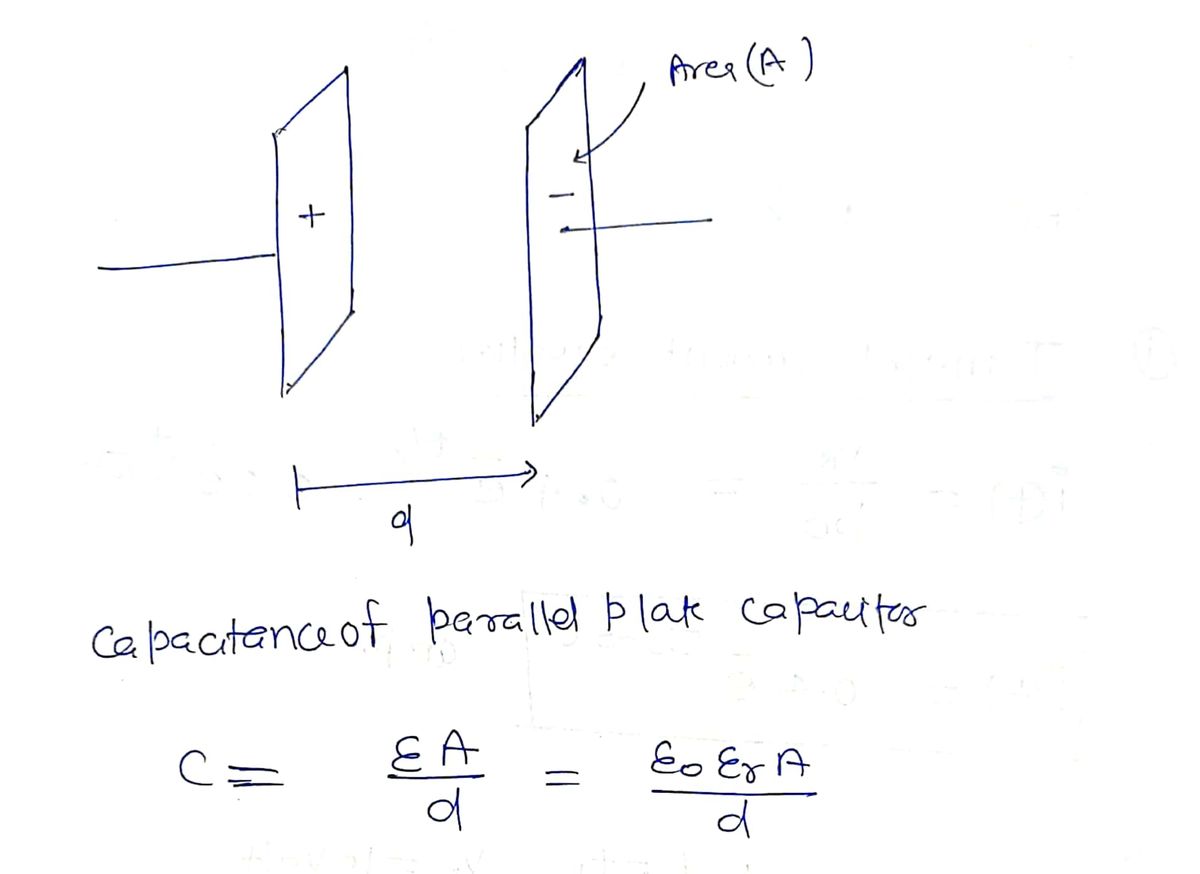 Area (A)
+
-
d
Capacitance of parallel plate capacitor
C = εA/d = ε0 εr A/d